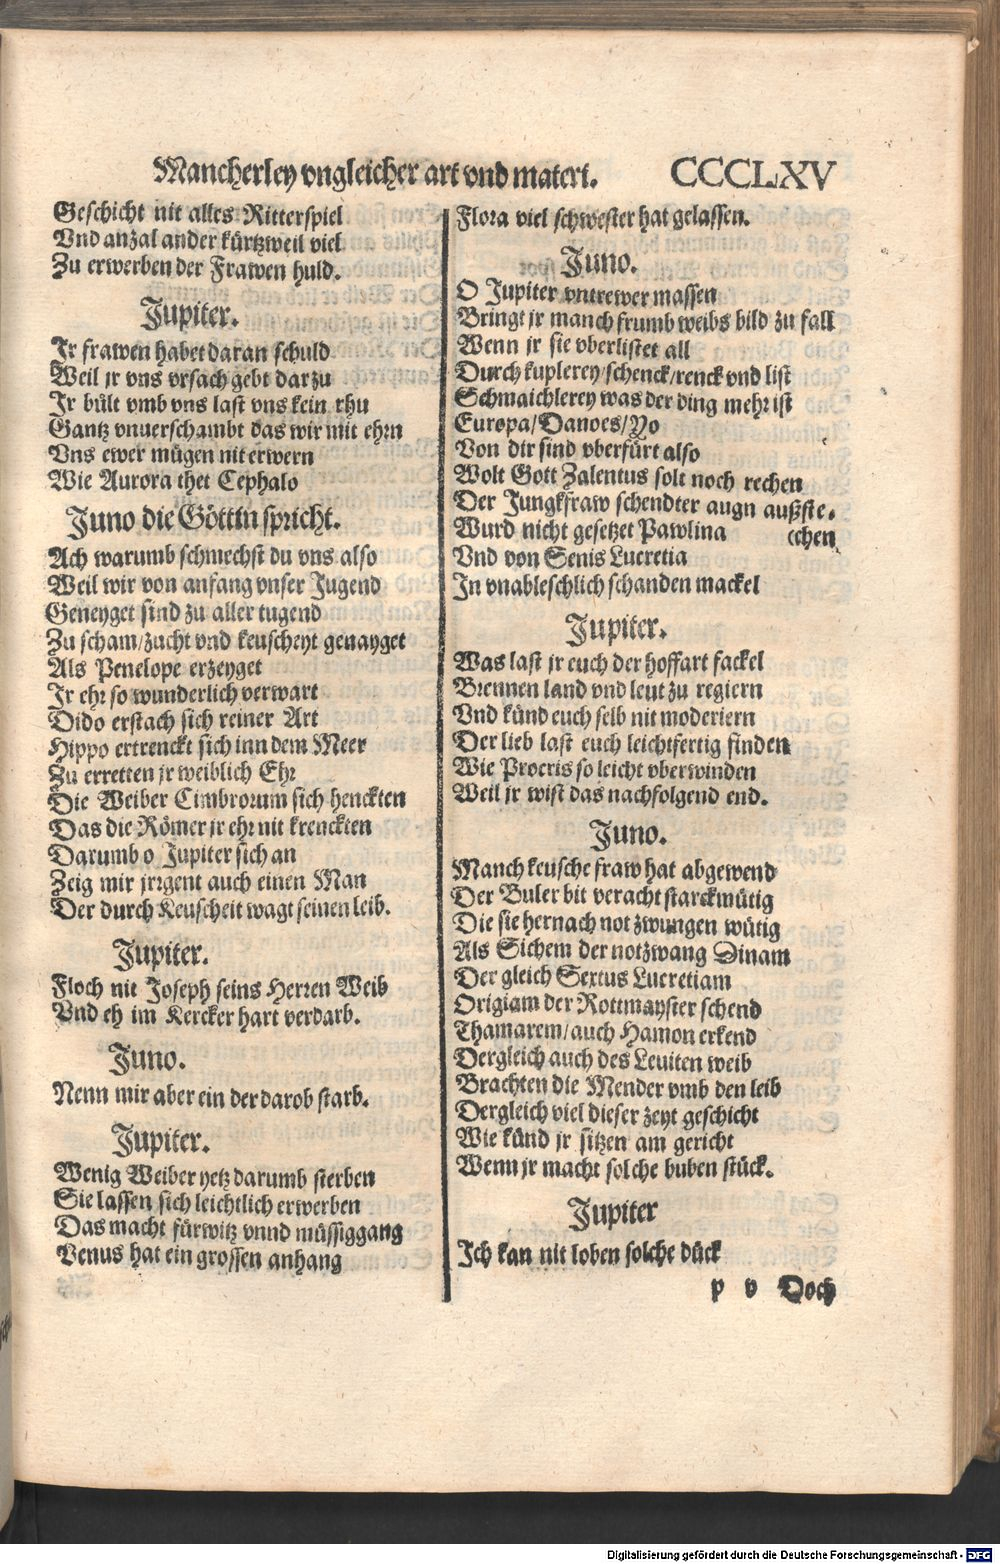 Mancherley vngleicher art vnd materi. CCCLXV
Geschicht nit alles Ritterspiel
Vnd anzal ander kürtzweil viel
Zu erwerben der Frawen huld.
Jupiter.
Ir frawen habet daran schuld
Weil jr vns vrsach gebt darzu
Ir bült vmb vns last vns kein rhu
Gantz vnuerschambt das wir mit ehrn
Vns ewer mügen nit erwern
Wie Aurora thet Cephalo
Juno die Göttin spricht.
Ach warumb schmechst du vns also
Weil wir von anfang vnser Jugend
Geneyget sind zu aller tugend
Zu scham/zucht vnd keuscheyt genayget
Als Penelope erzeyget
Ir ehr so wunderlich verwart
Dido erstach sich reiner Art
Hippo ertrenckt sich inn dem Meer
Zu erretten jr weiblich Ehr
Die Weiber Cimbrorum sich henckten
Das die Römer jr ehr nit krenckten
Darumb o Jupiter sich an
Zeig mir jrrgent auch einen Man
Der durch Keuscheit wagt seinen leib.
Jupiter.
Floch nit Joseph seins Herren Weib
Vnd eh im Kercker hart verdarb.
Juno.
Nenn mir aber ein der darob starb.
Jupiter.
Wenig Weiber yetz darumb sterben
Sie lassen sich leichtlich erwerben
Das macht fürwitz vnnd müssiggang
Venus hat ein grossen anhang
Flora viel schwester hat gelassen.
Juno.
O Jupiter vntrewer massen
Bringt jr manch frumb weibs bild zu fall
Wenn jr sie vberlistet all
Durch kuplerey/schenck/renck vnd list
Schmaichlerey was der ding mehr ist
Europa/Danoes/Yo
Von dir sind vberfürt also
Wolt Gott Zalentus solt noch rechen
Der Jungkfraw schendter augn außste-
Wurd nicht gesetzet Pawlina (chen
Vnd von Senis Lucretia
In vnableschlich schanden mackel
Jupiter.
Was last jr euch der hoffart fackel
Brennen land vnd leut zu regiern
Vnd künd euch selb nit moderiern
Der lieb last euch leichtfertig finden
Wie Procris so leicht vberwinden
Weil jr wist das nachfolgend end.
Juno.
Manch keusche fraw hat abgewend
Der Buler bit veracht starckmütig
Die sie hernach notzwungen wütig
Als Sichem der notzwang Dinam
Der gleich Sextus Lucretiam
Origiam der Rottmayster schend
Thamarem/auch Hamon erkend
Dergleich auch des Leuiten weib
Brachten die Mender vmb den leib
Dergleich viel dieser zeyt geschicht
Wie künd jr sitzen am gericht
Wenn jr macht solche buben stück.
Jupiter
Ich kan nit loben solche dück
p v Doch
Digitalisierung gefördert durch die Deutsche Forschungsgemeinschaft - DFG